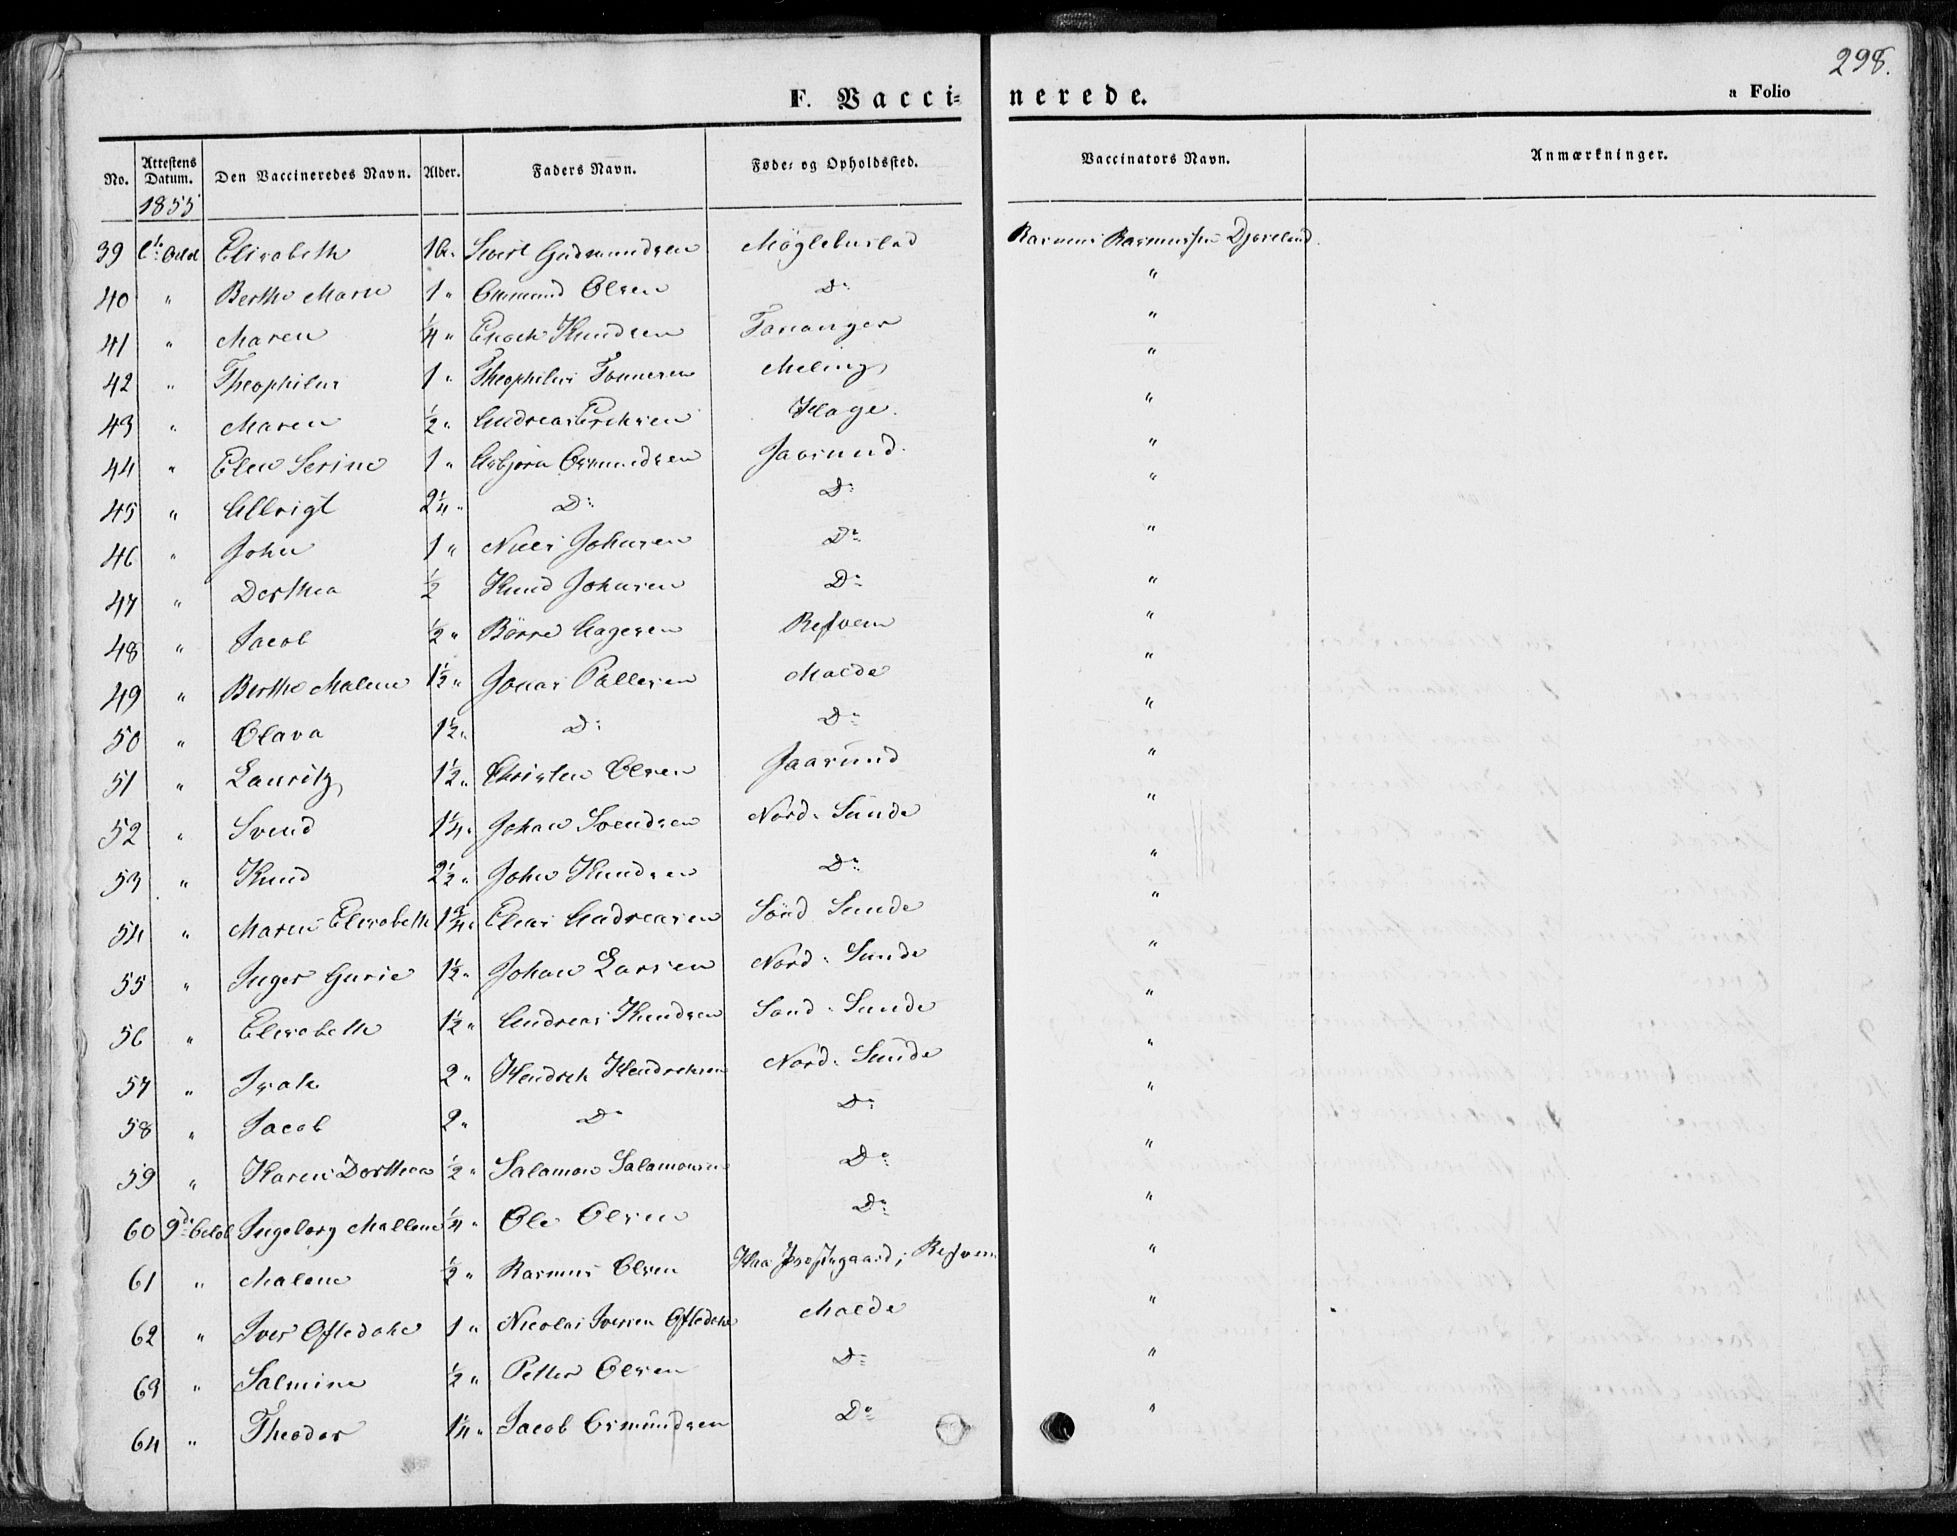 298.
F. Vaccinerede.
a Folio
No. Attestens Datum. Den Vaccineredes Navn. Alder. Faders Navn. Føde- og Opholdssted. Vaccinators Navn. Anmærkninger.
1855
39 Elisabeth Sivert Gudmundsen Møglebustad Rasmus Rasmussen
40 " Berthe Marie 1 " Ommund Olsen Do "
41 " Maren 1/4 " Enoch Knudsen Tananger "
42 " Theophilus 1 " Theophilus Tønnesen Meling "
43 " Maren 1/2 " Andreas Eriksen Hage. "
44 " Elen Serine 1 " Asbjørn Osmundsen Jaasund. "
45 " 2 1/4 " Do Do "
46 " John 1 " Niels Johnsen Do "
47 " Dorthea 1/2 Knud Johnsen Do "
48 " Jacob 1/2 " Børre Aagesen Refsem "
49 " Berthe Malene 1 1/2 " Jonas Pallesen Malde "
50 " Olava 1 1/2 " Do Do "
51 " Lauritz 1 1/2 " Christen Olsen Jaasund "
52 " Svend 1 1/4 " Johan Svendsen Nord-Sunde "
53 " Knud 2 1/2 " John Knudsen Do "
54 " Maren Elisabeth 1 3/4 " Elias Andreasen Sønd Sunde "
55 " Inger Gurie 1 1/2 " Johan Larsen Nord-Sunde "
56 " Elisabeth 1 1/2 " Andreas Knudsen Sønd-Sunde "
57 " Isak 2 " Hendrik Hendriksen Nord-Sunde "
58 " Jacob 2 " Do Do "
59 " Karen Dorthea 1/2 " Salamon Salamonsen Do "
60 9de Octob Ingeborg Mallene 1/4 " Ole Olsen Do "
61 " Malene 1/2 " Rasmus Olsen "
62 " Iver Oftedahl 1 " Nicolai Iversen Oftedahl Malde "
63 " Salmine 1/2 " Petter Olsen Do "
64 " Theodor 1 1/4 " Jacob Osmundsen Do "